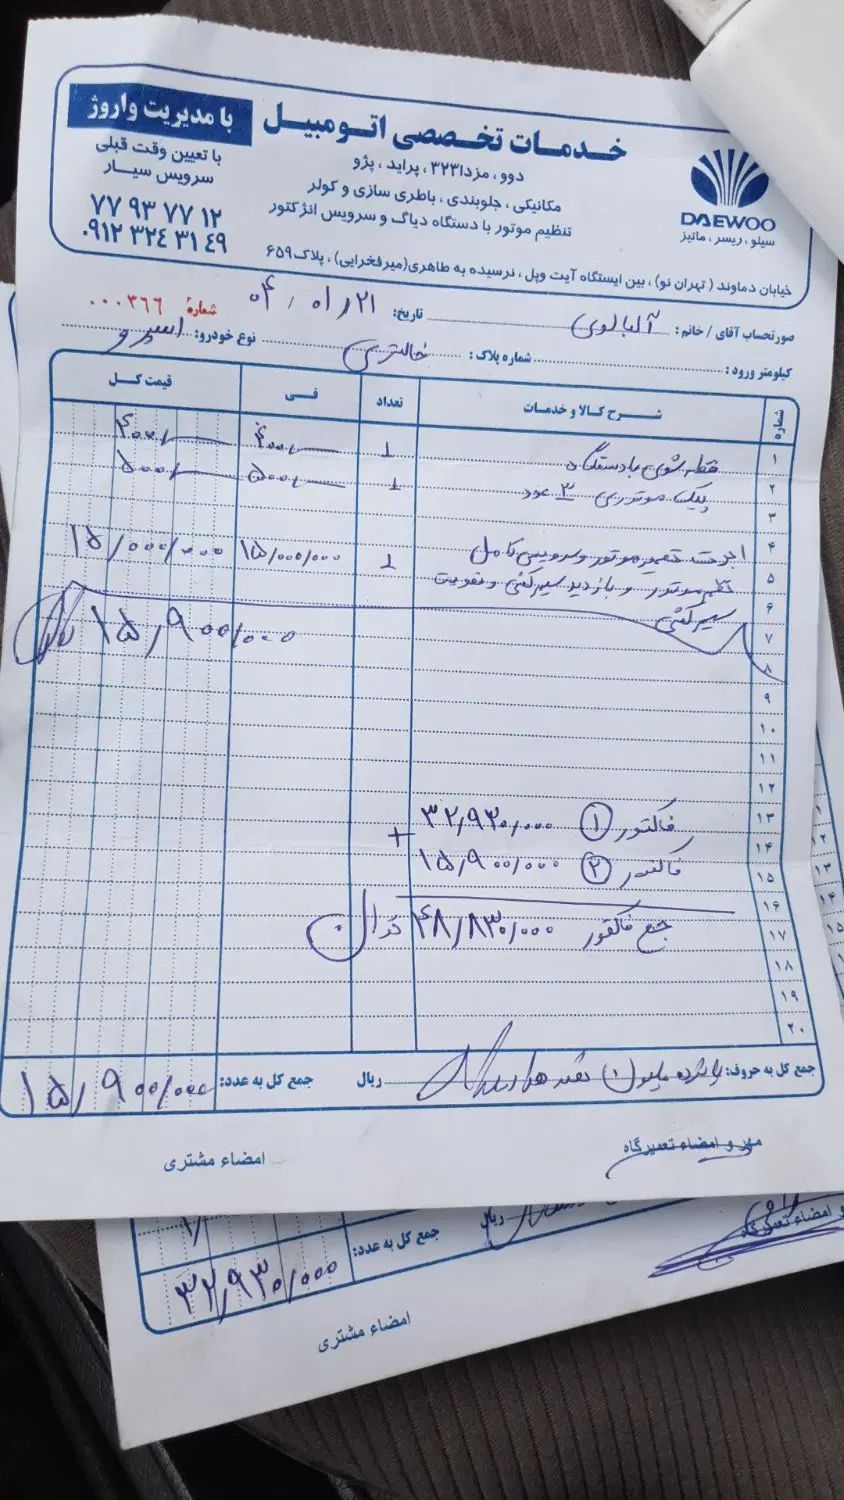 خدمات تخصصی اتومبیل
با مدیریت واروژ
دوو ، مزدا۳۲۳ ، پراید ، پژو
مکانیکی ، جلوبندی ، باطری سازی و کولر
تنظیم موتور با دستگاه دیاگ و سرویس انژکتور
با تعیین وقت قبلی
سرویس سیـار
۷۷ ۹۳ ۷۷ ۱۲
۰۹۱۲ ۳۲٤ ۳۱ ٤۹
DAEWOO
سیلو ، ریسر ، ماتیز
خیابان دماوند ( تهران نو) ، بین ایستگاه آیت وپل ، نرسیده به طاهری(میرفخرایی) ، پلاک ۶۵۹
صورتحساب آقای / خانم : آلبالوی تاریخ: ۰۴/۰۱/۲۱ شماره ۰۰۰۳۶۶
کیلومتر ورود : شماره پلاک : نوع خودرو: اسپرو
شماره شـرح کالا و خدمات تعداد فـی قیمت کـل
۱ قطعه شوی با دستگاه ۱ ۴۰۰/۰۰۰ ۴۰۰/۰۰۰
۲ پیک موتوری ۳ عدد ۱ ۵۰۰/۰۰۰ ۵۰۰/۰۰۰
۳
۴ اجرت تعمیر موتور و سرویس کامل ۱ ۱۵/۰۰۰/۰۰۰ ۱۵/۰۰۰/۰۰۰
۵ موتور و بازدید سیم کشی و تقویت
۶ سیم کشی
۷ ۱۵/۹۰۰/۰۰۰
۸
۹
۱۰
۱۱
۱۲
۱۳ فاکتور ۱ ۳۲/۹۳۰/۰۰۰
۱۴ +
۱۵ فاکتور ۲ ۱۵/۹۰۰/۰۰۰
۱۶
۱۷ جمع فاکتور ۴۸/۸۳۰/۰۰۰
۱۸
۱۹
۲۰
جمع کل به حروف: پانزده میلیون ریال جمع کل به عدد: ۱۵/۹۰۰/۰۰۰
مهر و امضاء تعمیرگاه امضاء مشتری
ریال جمع کل به عدد: ۳۲/۹۳۰/۰۰۰
و امضاء تعمیرگاه
امضاء مشتری